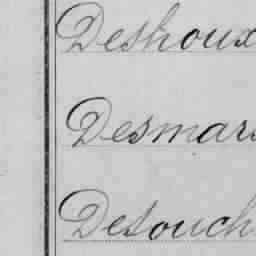 Deshoux
Desmar
Desouch